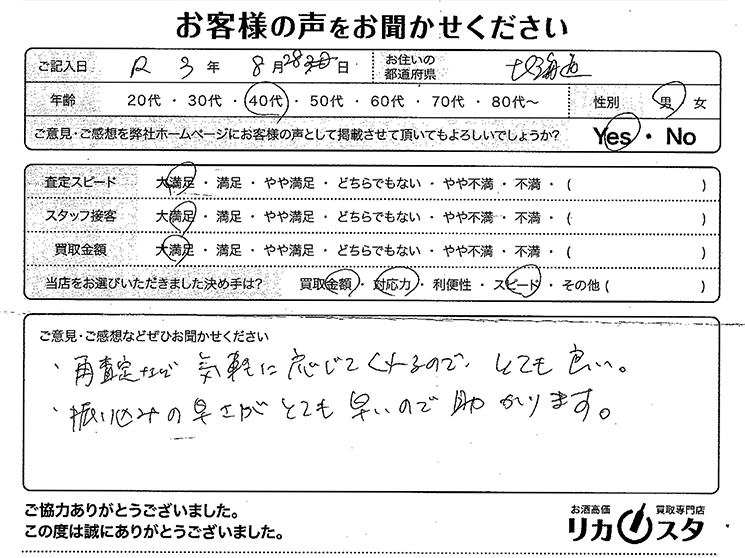 お客様の声をお聞かせください
ご記入日 R 3 年 8 月 28 日 お住いの都道府県
年齢 20代 ・ 30代 ・ 40代 ・ 50代 ・ 60代 ・ 70代 ・ 80代〜 性別 男 ・ 女
ご意見・ご感想を弊社ホームページにお客様の声として掲載させて頂いてもよろしいでしょうか? Yes ・ No
査定スピード 大満足 ・ 満足 ・ やや満足 ・ どちらでもない ・ やや不満 ・ 不満 ・ ( )
スタッフ接客 大満足 ・ 満足 ・ やや満足 ・ どちらでもない ・ やや不満 ・ 不満 ・ ( )
買取金額 大満足 ・ 満足 ・ やや満足 ・ どちらでもない ・ やや不満 ・ 不満 ・ ( )
当店をお選びいただきました決め手は? 買取金額 ・ 対応力 ・ 利便性 ・ スピード ・ その他 ( )
ご意見・ご感想などぜひお聞かせください
・再査定など気軽に応じてくれるので、とても良い。
・振り込みの早さがとても早いので助かります。
ご協力ありがとうございました。
この度は誠にありがとうございました。
お酒高価 買取専門店
リカスタ